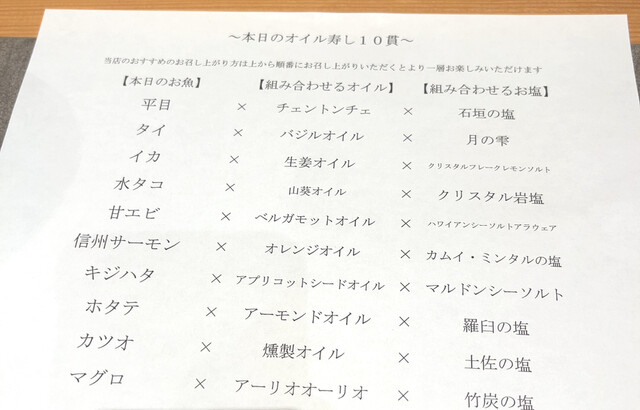 ～本日のオイル寿し１０貫～
当店のおすすめのお召し上がり方は上から順番にお召し上がりいただくとより一層お楽しみいただけます
【本日のお魚】 【組み合わせるオイル】 【組み合わせるお塩】
平目 × チェントンチェ × 石垣の塩
タイ × バジルオイル × 月の雫
イカ × 生姜オイル × クリスタルフレークレモンソルト
水タコ × 山葵オイル × クリスタル岩塩
甘エビ × ベルガモットオイル × ハワイアンシーソルトアラウェア
信州サーモン × オレンジオイル × カムイ・ミンタルの塩
キジハタ × アプリコットシードオイル × マルドンシーソルト
ホタテ × アーモンドオイル × 羅臼の塩
カツオ × 燻製オイル × 土佐の塩
マグロ × アーリオオーリオ × 竹炭の塩